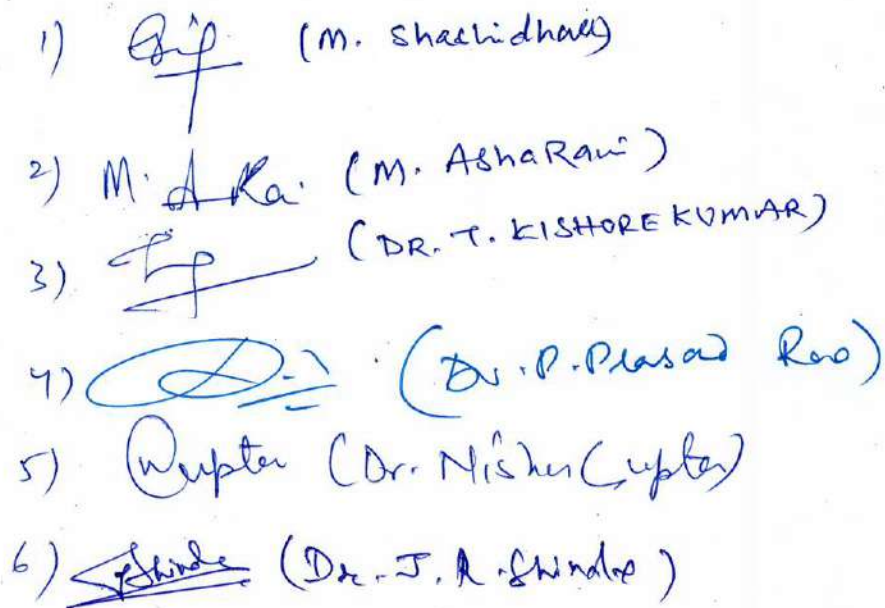 1) (M. Shashidhar)
2) M. A Ra. (M. AshaRani)
3) (DR. T. KISHORE KUMAR)
4) (Dr. P. Prasad Rao)
5) Gupta (Dr. Nisha Gupta)
6) Shinde (Dr. J. R. Shinde)